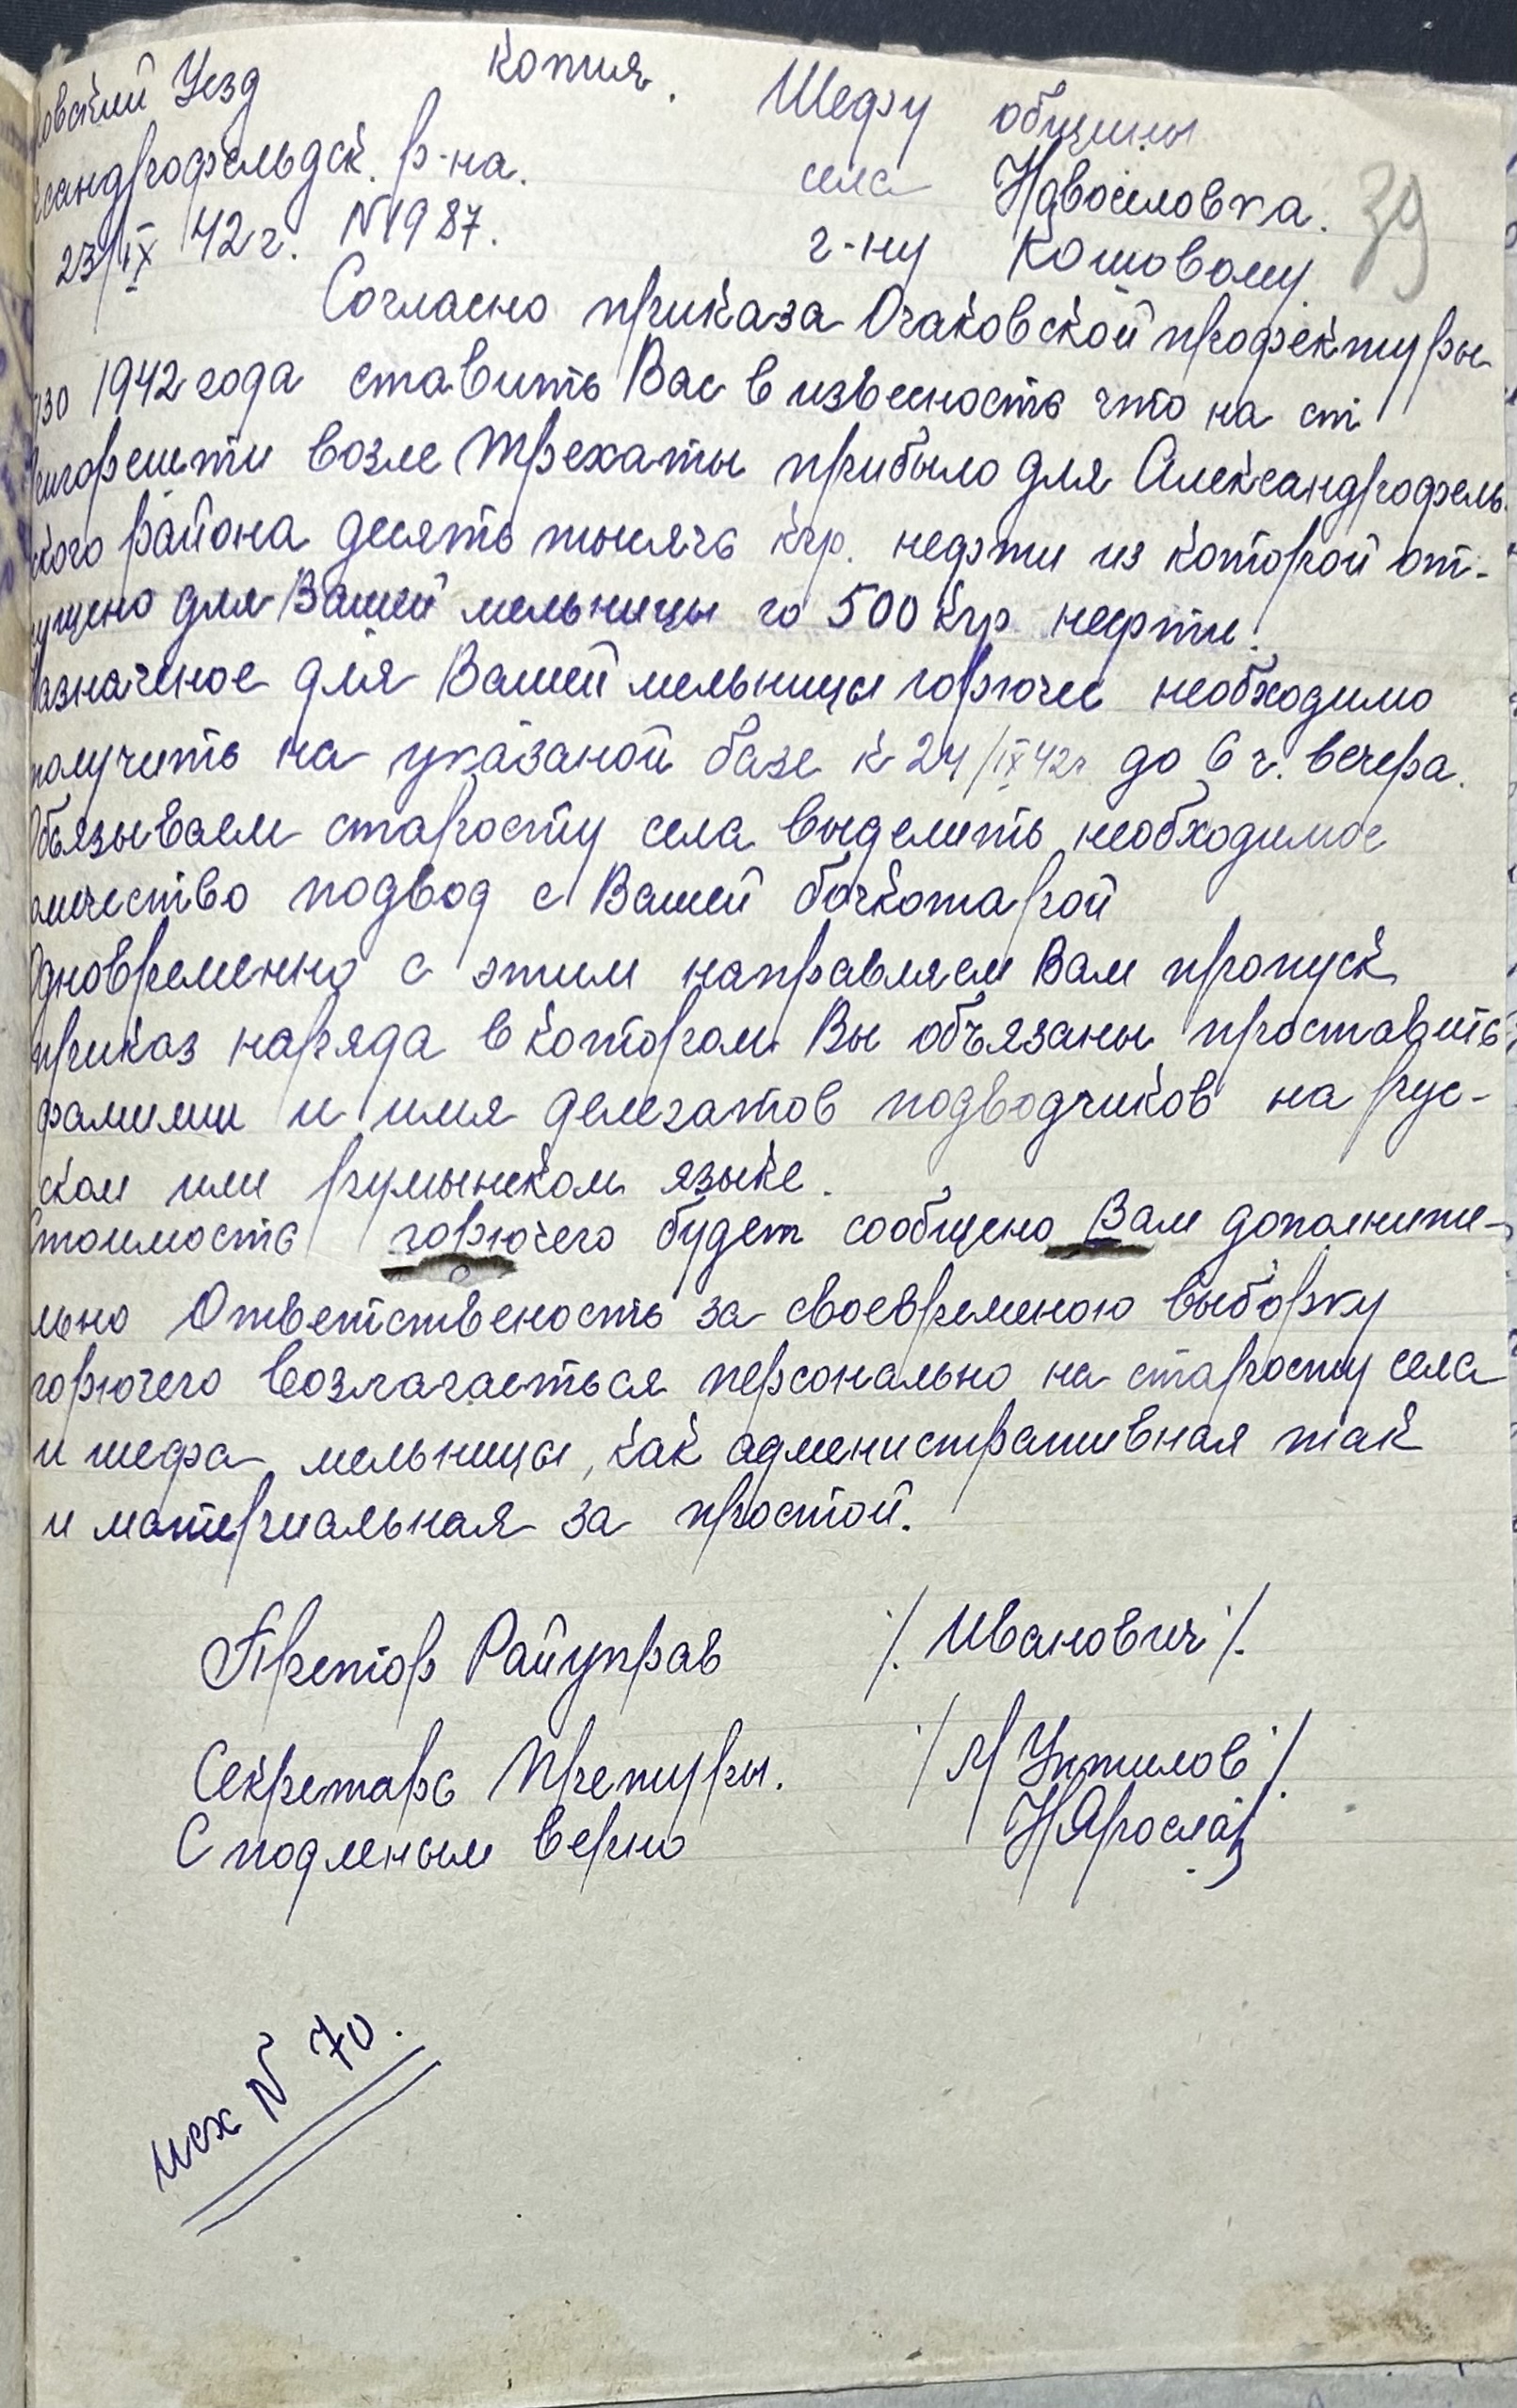 овский Уезд
копия.
Шефу общины
сандрофельдск. р-на.
села Новоселовка.
39
23/IX 42 г. N 1987.
г-ну Кошовому.
Согласно приказа Очаковской профектуры
1942 года ставить Вас в извесность что на ст
возле Трехаты прибыло для Александрофель
кого района десять тысячь кгр. нефти из которой от-
ущено для Вашей мельницы го 500 кгр нефти.
азначеное для Вашей мельницы горючее необходимо
получить на указаной базе к 24/IX 42г до 6 ч. вечера.
Объязываем старосту села выделить необходимое
оличество подвод с Вашей бочкотарой
Одновременно с этим направляем Вам пропуск
приказ наряда в котором Вы объязаны проставить
фамилии и имя делегатов подводчиков на рус-
ском или румынском языке.
Стоимость горючего будет сообщено Вам дополните-
льно Ответственость за своевременою выборку
горючего возлагаеться персонально на старосту села
и шефа мельницы, как админестративная так
и материальная за простой.
Претор Райуправ /. Иванович /.
Секретарь Претуры. / /
С подленым верно
исх N 70.